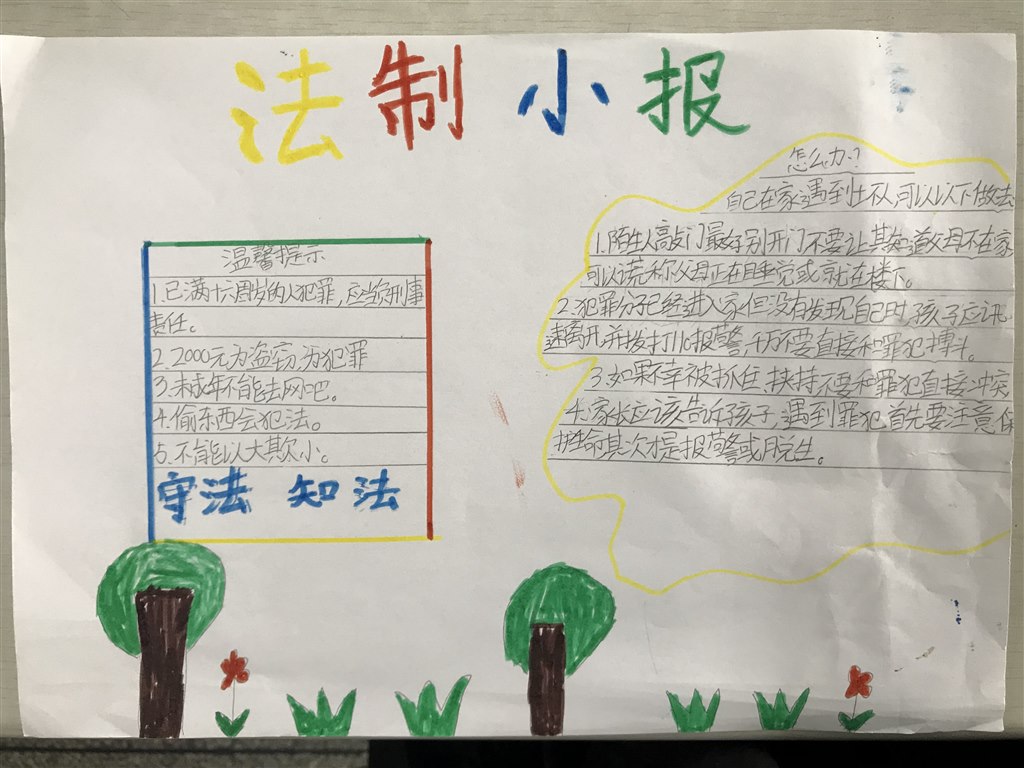 法制小报
温馨提示
1.已满十六周岁的人犯罪，应当负刑事
责任。
2.2000元为盗窃，为犯罪
3.未成年不能去网吧。
4.偷东西会犯法。
5.不能以大欺小。
守法 知法
怎么办？
自己在家遇到坏人,可以以下做法
1.陌生人敲门最好别开门不要让其知道父母不在家
可以谎称父母正在睡觉或就在楼下。
2.犯罪分子已经进入家但没有发现自己时,孩子应讯
速离开,并拨打110报警,千万不要直接和罪犯搏斗。
3.如果不幸被抓住,挟持不要和罪犯直接冲突
4.家长应该告诉孩子,遇到罪犯,首先要注意保
护生命其次才是报警或脱生。